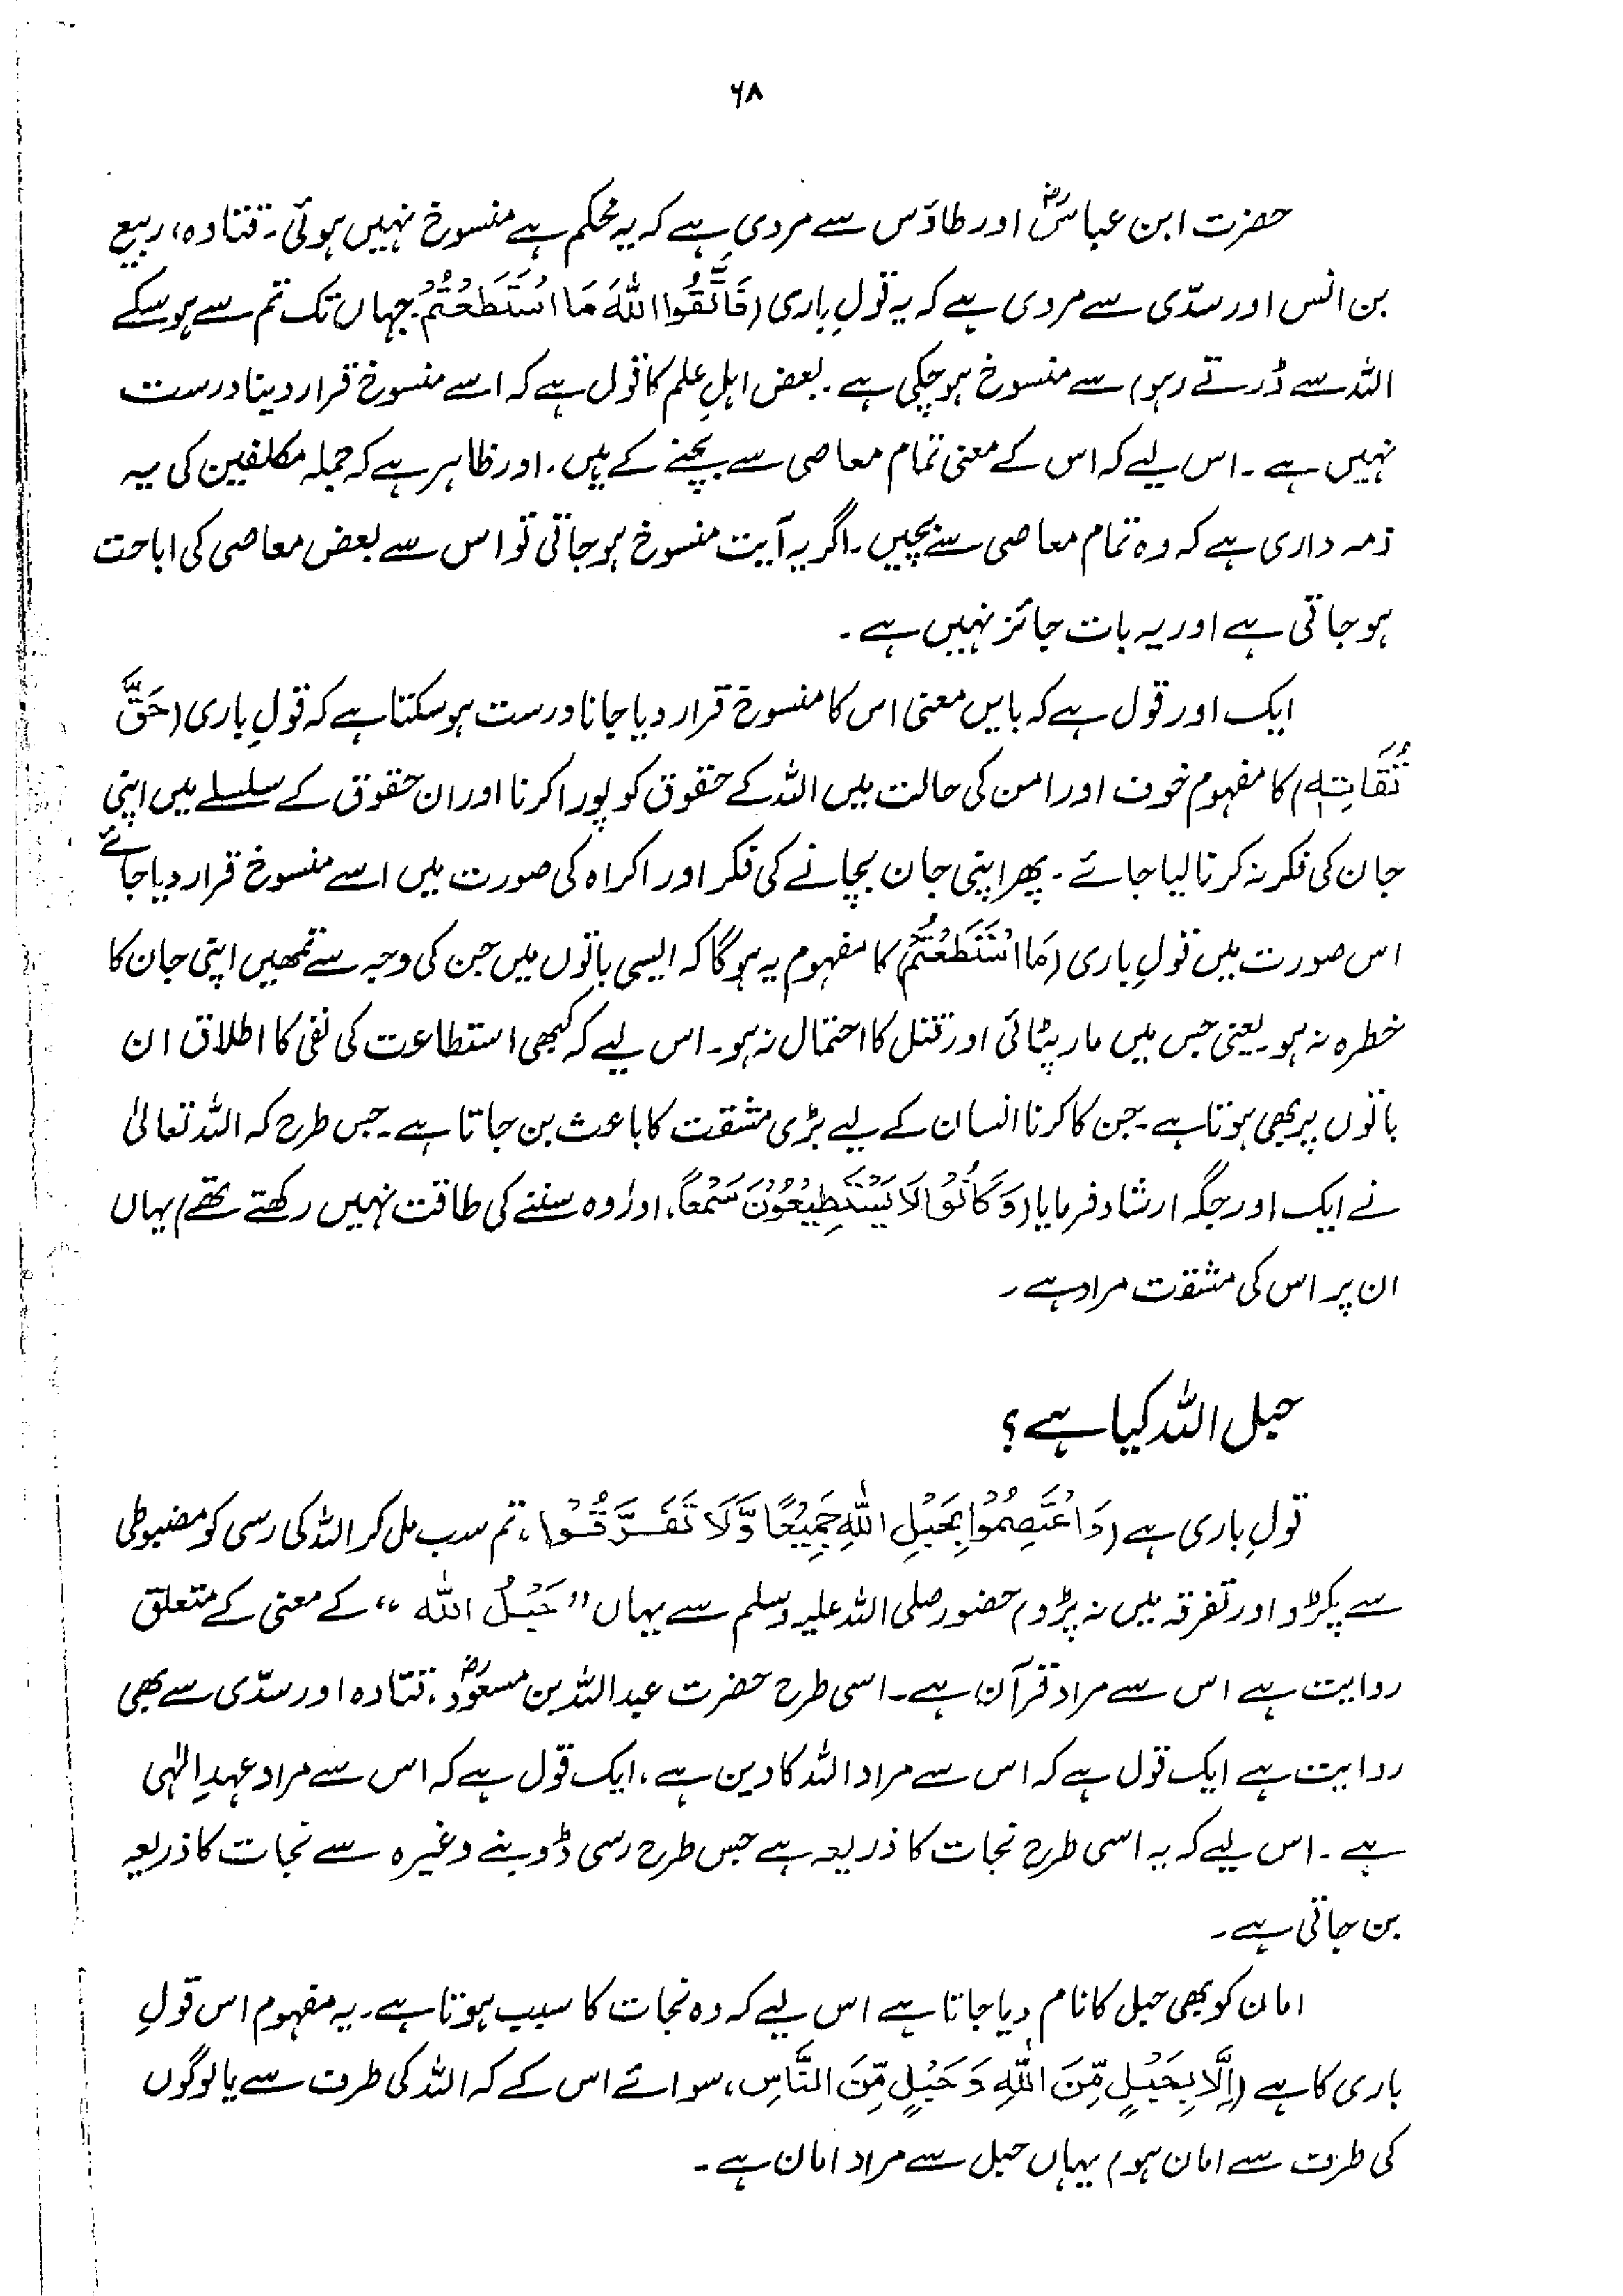 ۶۸
حضرت ابن عباسؓ اور طاؤس سے مروی ہے کہ یہ محکم ہے منسوخ نہیں ہوئی۔ قتادہ، ربیع
بن انس اور سدّی سے مروی ہے کہ یہ قولِ باری (فَاتَّقُوا اللّٰهَ مَا اسْتَطَعْتُمْ، جہاں تک تم سے ہو سکے
اللہ سے ڈرتے رہو) سے منسوخ ہو چکی ہے۔ بعض اہلِ علم کا قول ہے کہ اسے منسوخ قرار دینا درست
نہیں ہے۔ اس لیے کہ اس کے معنی تمام معاصی سے بچنے کے ہیں۔ اور ظاہر ہے کہ جملہ مکلفین کی یہ
ذمہ داری ہے کہ وہ تمام معاصی سے بچیں۔ اگر یہ آیت منسوخ ہو جاتی تو اس سے بعض معاصی کی اباحت
ہو جاتی ہے اور یہ بات جائز نہیں ہے۔
ایک اور قول ہے کہ بایں معنی اس کا منسوخ قرار دیا جانا درست ہو سکتا ہے کہ قولِ باری (حَقَّ
تُقَاتِهٖ) کا مفہوم خوف اور امن کی حالت میں اللہ کے حقوق کو پورا کرنا اور ان حقوق کے سلسلے میں اپنی
جان کی فکر نہ کرنا لیا جائے۔ پھر اپنی جان بچانے کی فکر اور اکراہ کی صورت میں اسے منسوخ قرار دیا جائے
اس صورت میں قولِ باری (مَا اسْتَطَعْتُمْ) کا مفہوم یہ ہوگا کہ ایسی باتوں میں جن کی وجہ سے تمھیں اپنی جان کا
خطرہ نہ ہو۔ یعنی جس میں مار پٹائی اور قتل کا احتمال نہ ہو۔ اس لیے کہ کبھی استطاعت کی نفی کا اطلاق ان
باتوں پر بھی ہوتا ہے۔ جن کا کرنا انسان کے لیے بڑی مشقت کا باعث بن جاتا ہے۔ جس طرح کہ اللہ تعالیٰ
نے ایک اور جگہ ارشاد فرمایا (وَكَانُوْا لَا يَسْتَطِيْعُوْنَ سَمْعًا، اور وہ سننے کی طاقت نہیں رکھتے تھے) یہاں
ان پر اس کی مشقت مراد ہے۔
حبل اللہ کیا ہے؟
قولِ باری ہے (وَاعْتَصِمُوْا بِحَبْلِ اللّٰهِ جَمِيْعًا وَّلَا تَفَرَّقُوْا، تم سب مل کر اللہ کی رسی کو مضبوطی
سے پکڑو اور تفرقہ میں نہ پڑو) حضور صلی اللہ علیہ وسلم سے یہاں "حَبْلُ اللّٰه" کے معنی کے متعلق
روایت ہے اس سے مراد قرآن ہے۔ اسی طرح حضرت عبداللہ بن مسعودؓ، قتادہ اور سدّی سے بھی
روایت ہے ایک قول ہے کہ اس سے مراد اللہ کا دین ہے، ایک قول ہے کہ اس سے مراد عہدِ الٰہی
ہے۔ اس لیے کہ یہ اسی طرح نجات کا ذریعہ ہے جس طرح رسی ڈوبنے وغیرہ سے نجات کا ذریعہ
بن جاتی ہے۔
امان کو بھی حبل کا نام دیا جاتا ہے اس لیے کہ وہ نجات کا سبب ہوتا ہے۔ یہ مفہوم اس قولِ
باری کا ہے (اِلَّا بِحَبْلٍ مِّنَ اللّٰهِ وَحَبْلٍ مِّنَ النَّاسِ، سوائے اس کے کہ اللہ کی طرف سے یا لوگوں
کی طرف سے امان ہو) یہاں حبل سے مراد امان ہے۔